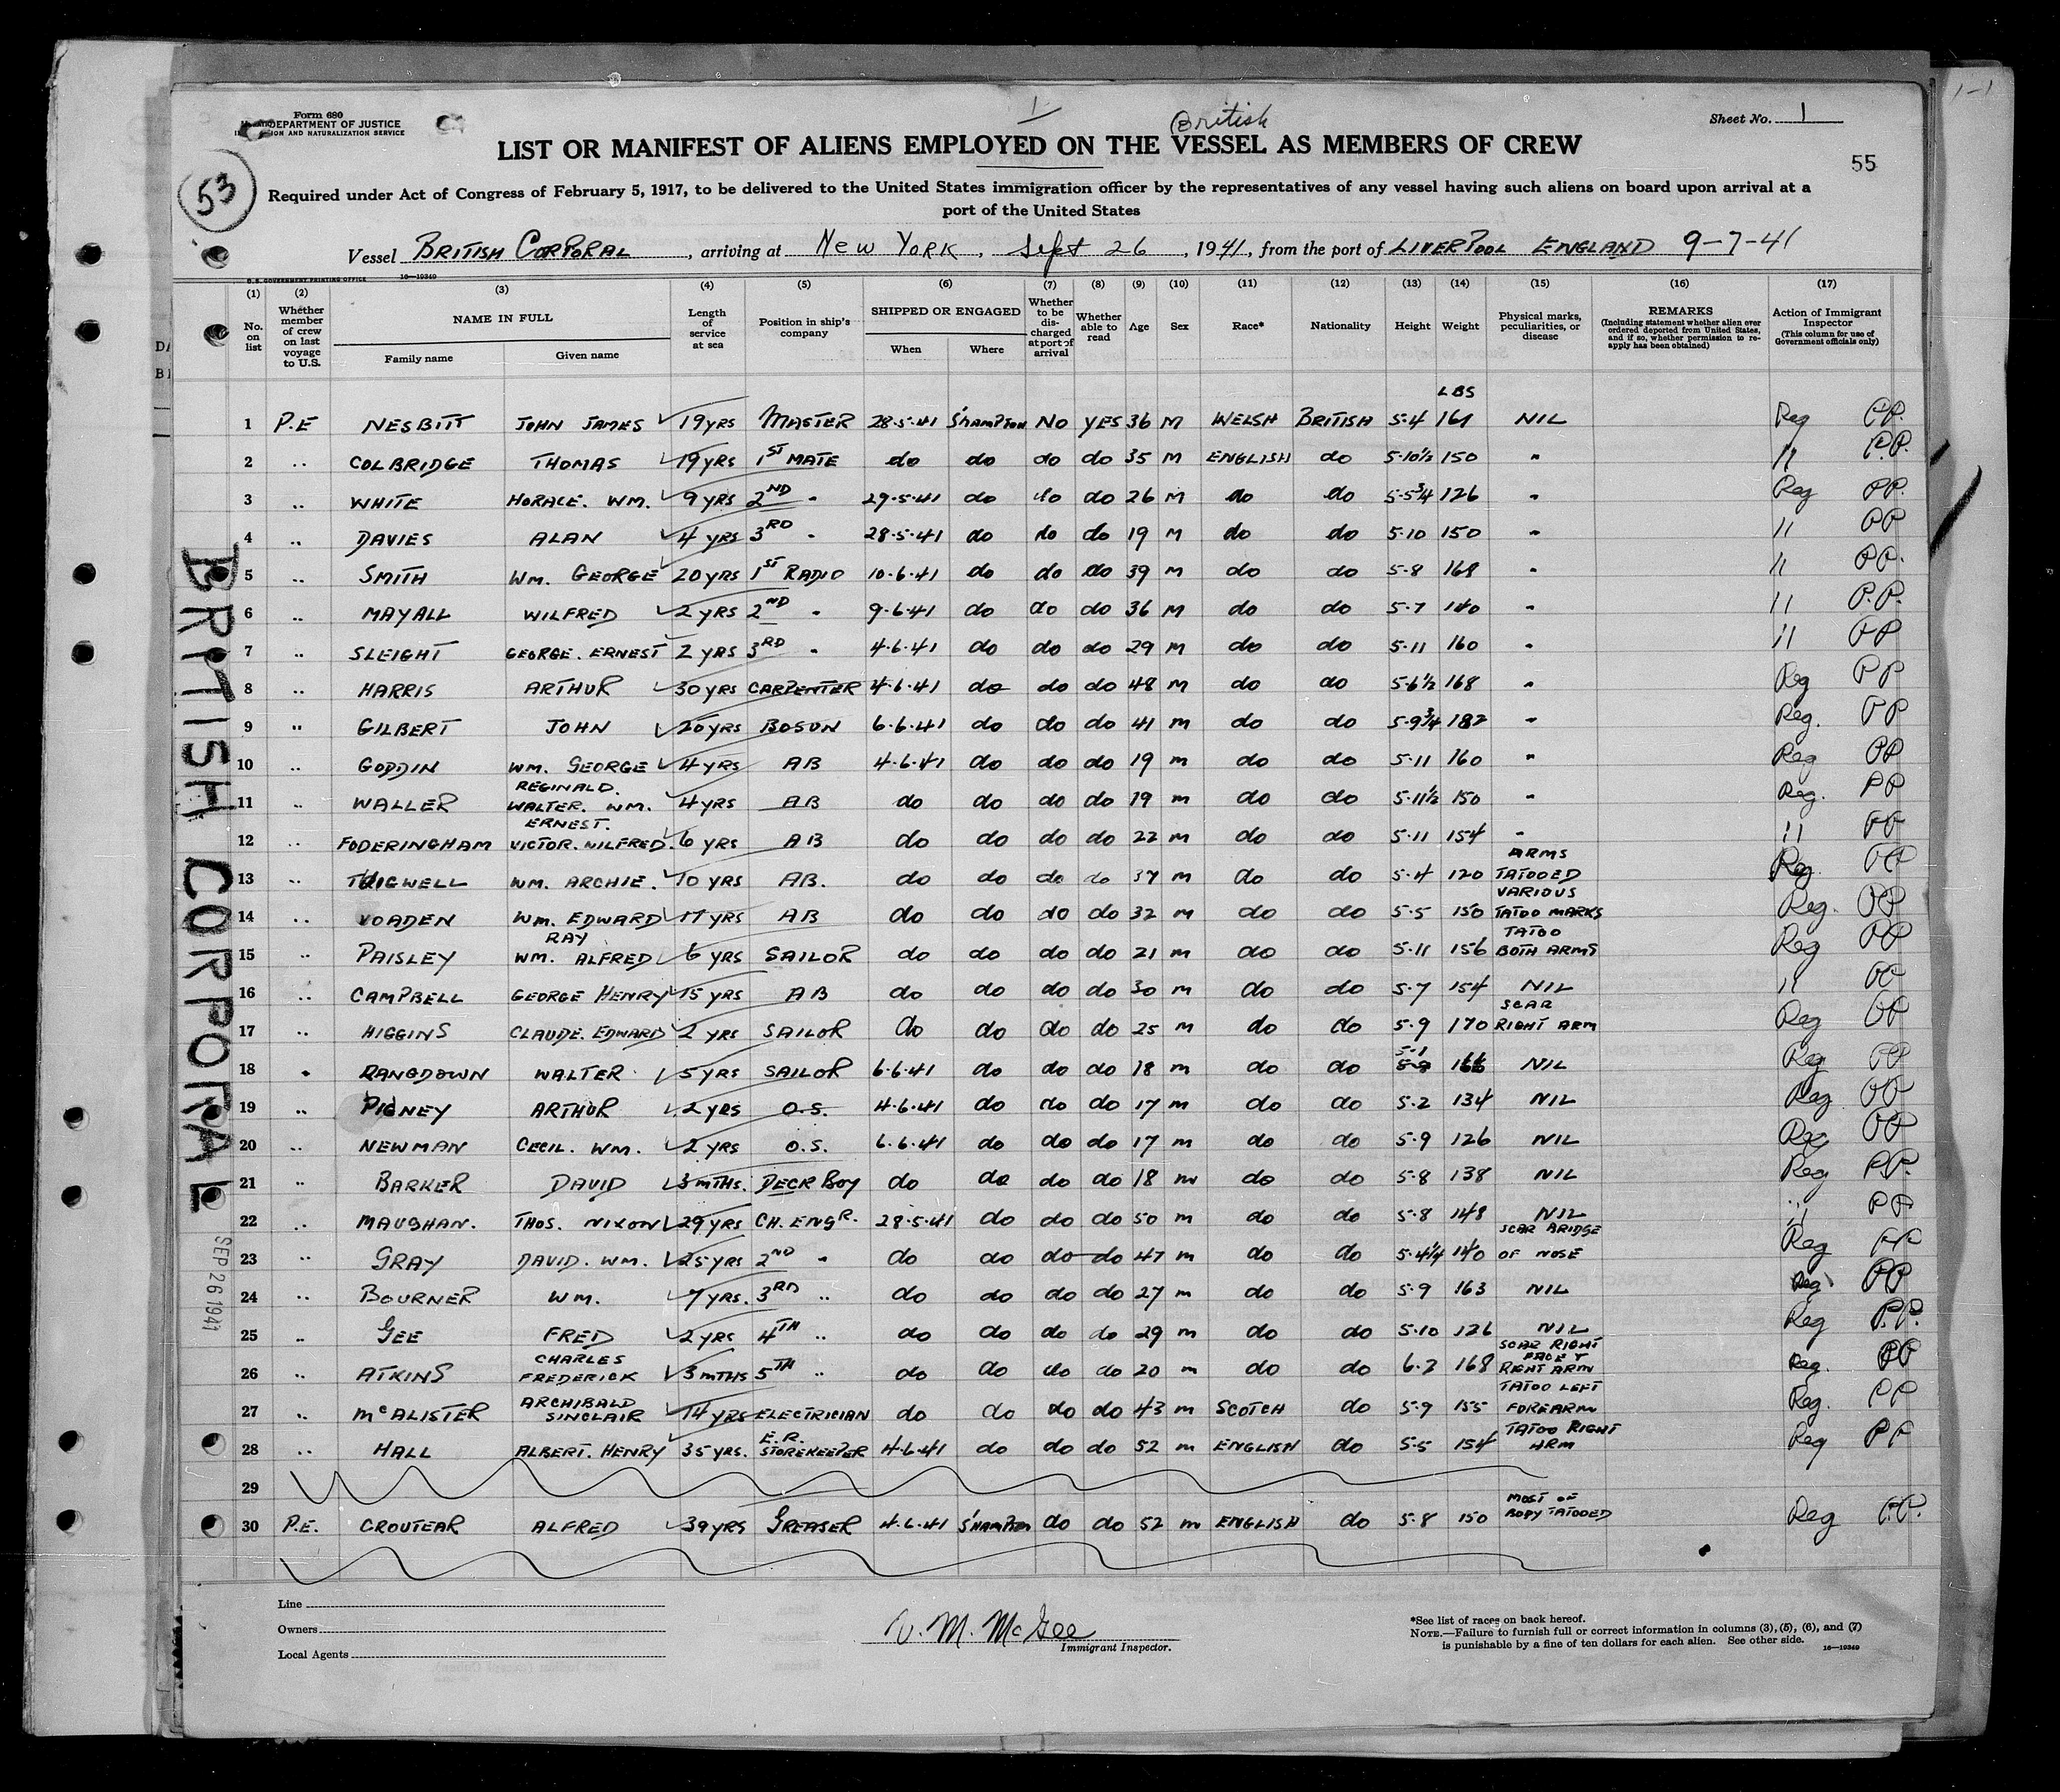 Form 680
DEPARTMENT OF JUSTICE
ION AND NATURALIZATION SERVICE
1
British
Sheet No. 1
LIST OR MANIFEST OF ALIENS EMPLOYED ON THE VESSEL AS MEMBERS OF CREW
55
53
Required under Act of Congress of February 5, 1917, to be delivered to the United States immigration officer by the representatives of any vessel having such aliens on board upon arrival at a
port of the United States
Vessel BRITISH CORPORAL, arriving at NEW YORK, Sept 26, 1941, from the port of LIVERPOOL ENGLAND 9-7-41
U.S. GOVERNMENT PRINTING OFFICE 16-19349
(1) (2) (3) (4) (5) (6) (7) (8) (9) (10) (11) (12) (13) (14) (15) (16) (17)
No. on list
Whether member of crew on last voyage to U.S.
NAME IN FULL
Family name
Given name
Length of service at sea
Position in ship's company
SHIPPED OR ENGAGED
When
Where
Whether to be discharged at port of arrival
Whether able to read
Age
Sex
Race*
Nationality
Height
Weight
Physical marks, peculiarities, or disease
REMARKS
(Including statement whether alien ever ordered deported from United States, and if so, whether permission to re-apply has been obtained)
Action of Immigrant Inspector
(This column for use of Government officials only)
LBS
1 P.E NESBITT JOHN JAMES 19 YRS MASTER 28·5·41 S'HAMPTON NO YES 36 M WELSH BRITISH 5·4 161 NIL Reg PP.
2 .. COLBRIDGE THOMAS 19 YRS 1ST MATE do do do do 35 M ENGLISH do 5·10½ 150 " 11 P.P.
3 .. WHITE HORACE. WM. 9 YRS 2ND " 29·5·41 do do do 26 M do do 5·5¾ 126 " Reg PP.
4 .. DAVIES ALAN 4 YRS 3RD " 28·5·41 do do do 19 M do do 5·10 150 " 11 PP
5 .. SMITH WM. GEORGE 20 YRS 1ST RADIO 10·6·41 do do do 39 M do do 5·8 168 " 11 PP.
6 .. MAYALL WILFRED 2 YRS 2ND " 9·6·41 do do do 36 M do do 5·7 140 " 11 P.P.
7 .. SLEIGHT GEORGE. ERNEST 2 YRS 3RD " 4·6·41 do do do 29 M do do 5·11 160 " 11 PP
8 .. HARRIS ARTHUR 30 YRS CARPENTER 4·6·41 do do do 48 M do do 5·6½ 168 " Reg PP
9 .. GILBERT JOHN 20 YRS BOSUN 6·6·41 do do do 41 M do do 5·9¾ 182 " Reg. PP
10 .. GODDIN WM. GEORGE 4 YRS AB 4·6·41 do do do 19 M do do 5·11 160 " Reg PP
11 .. WALLER REGINALD. WALTER. WM. 4 YRS AB do do do do 19 M do do 5·11½ 150 " Reg. PP
12 .. FODERINGHAM ERNEST. VICTOR. WILFRED. 6 YRS AB do do do do 22 M do do 5·11 154 " 11 PP
13 .. TWIGWELL WM. ARCHIE. 10 YRS AB. do do do do 37 M do do 5·4 120 ARMS TATOOED Reg. PP
14 .. VOADEN WM. EDWARD 17 YRS AB do do do do 32 M do do 5·5 150 VARIOUS TATOO MARKS Reg. PP
15 .. PAISLEY RAY WM. ALFRED 6 YRS SAILOR do do do do 21 M do do 5·11 156 TATOO BOTH ARMS Reg PP
16 .. CAMPBELL GEORGE HENRY 15 YRS AB do do do do 30 M do do 5·7 154 NIL 11 PP
17 .. HIGGINS CLAUDE. EDWARD 2 YRS SAILOR do do do do 25 M do do 5·9 170 SCAR RIGHT ARM Reg PP
18 . RANGDOWN WALTER 5 YRS SAILOR 6·6·41 do do do 18 M do do 5·1 166 NIL Reg PP
19 .. PIGNEY ARTHUR 2 YRS O.S. 4·6·41 do do do 17 M do do 5·2 134 NIL Reg PP
20 .. NEWMAN CECIL. WM. 2 YRS O.S. 6·6·41 do do do 17 M do do 5·9 126 NIL Reg PP
21 .. BARKER DAVID 3 MTHS. DECK BOY do do do do 18 M do do 5·8 138 NIL Reg PP.
22 .. MAUGHAN. THOS. NIXON 29 YRS CH. ENGR. 28·5·41 do do do 50 M do do 5·8 148 NIL 11 PP
23 .. GRAY DAVID. WM. 25 YRS 2ND " do do do do 47 M do do 5·4¼ 140 SCAR BRIDGE OF NOSE Reg PP
24 .. BOURNER WM. 7 YRS. 3RD .. do do do do 27 M do do 5·9 163 NIL Reg PP
25 .. GEE FRED 2 YRS 4TH .. do do do do 29 M do do 5·10 126 NIL Reg P.P.
26 .. ATKINS CHARLES FREDERICK 3 MTHS 5TH .. do do do do 20 M do do 6·2 168 SCAR RIGHT FACE & RIGHT ARM Reg. PP
27 .. McALISTER ARCHIBALD SINCLAIR 14 YRS ELECTRICIAN do do do do 43 M SCOTCH do 5·9 155 TATOO LEFT FOREARM Reg. PP
28 .. HALL ALBERT. HENRY 35 YRS. E.R. STOREKEEPER 4·6·41 do do do 52 M ENGLISH do 5·5 154 TATOO RIGHT ARM Reg PP
29
30 P.E. CROUTEAR ALFRED 39 YRS GREASER 4·6·41 S'HAMPTON do do 52 M ENGLISH do 5·8 150 MOST OF BODY TATOOED Reg P.P.
BRITISH CORPORAL
SEP 26 1941
Line
Owners
Local Agents
V. M. McGee
Immigrant Inspector.
*See list of races on back hereof.
NOTE.—Failure to furnish full or correct information in columns (3), (5), (6), and (7)
is punishable by a fine of ten dollars for each alien. See other side. 16—19349